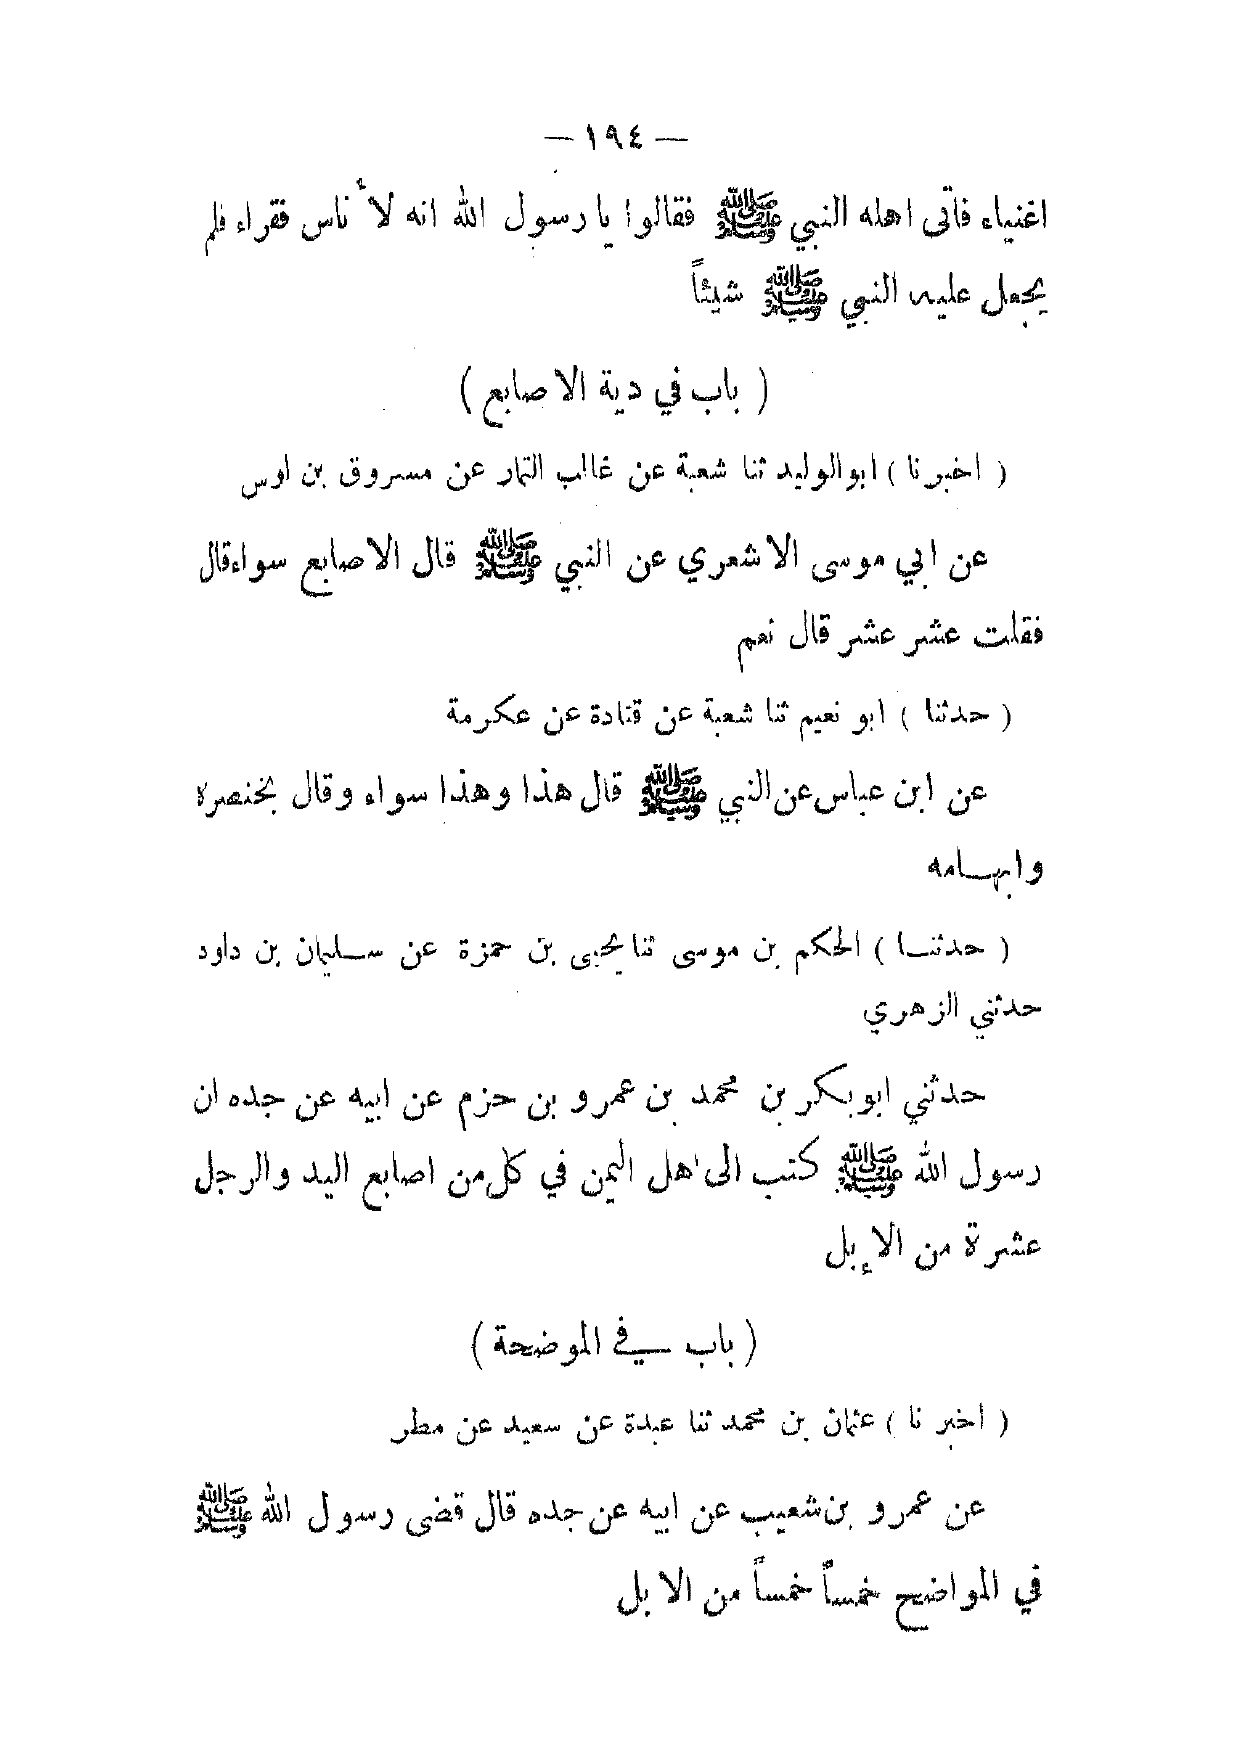 — ١٩٤ —
اغنياء فأتى اهله النبي ﷺ فقالوا يا رسول الله انه لأناس فقراء فلم
يجعل عليه النبي ﷺ شيئاً
( باب في دية الاصابع )
( اخبرنا ) ابوالوليد ثنا شعبة عن غالب التمار عن مسروق بن اوس
عن ابي موسى الاشعري عن النبي ﷺ قال الاصابع سواء قال
فقلت عشر عشر قال نعم
( حدثنا ) ابو نعيم ثنا شعبة عن قتادة عن عكرمة
عن ابن عباس عن النبي ﷺ قال هذا وهذا سواء وقال بخنصره
وابهامه
( حدثنا ) الحكم بن موسى ثنا يحيى بن حمزة عن سليمان بن داود
حدثني الزهري
حدثني ابوبكر بن محمد بن عمرو بن حزم عن ابيه عن جده ان
رسول الله ﷺ كتب الى اهل اليمن في كل من اصابع اليد والرجل
عشرة من الإبل
( باب في الموضحة )
( اخبرنا ) عثمان بن محمد ثنا عبدة عن سعيد عن مطر
عن عمرو بن شعيب عن ابيه عن جده قال قضى رسول الله ﷺ
في المواضح خمساً خمساً من الابل